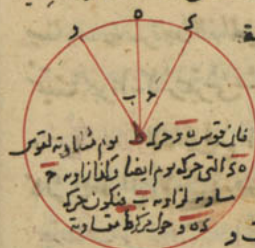 و ه ى
ب ح
فان قوس ه و حركة ط يوم مساوية لقوس
ه ى التى حركة يوم ايضا وكذا زاوية ح
مساوية لزاوية ب فتكون حركة
ى ه و حول مركز ط متساوية